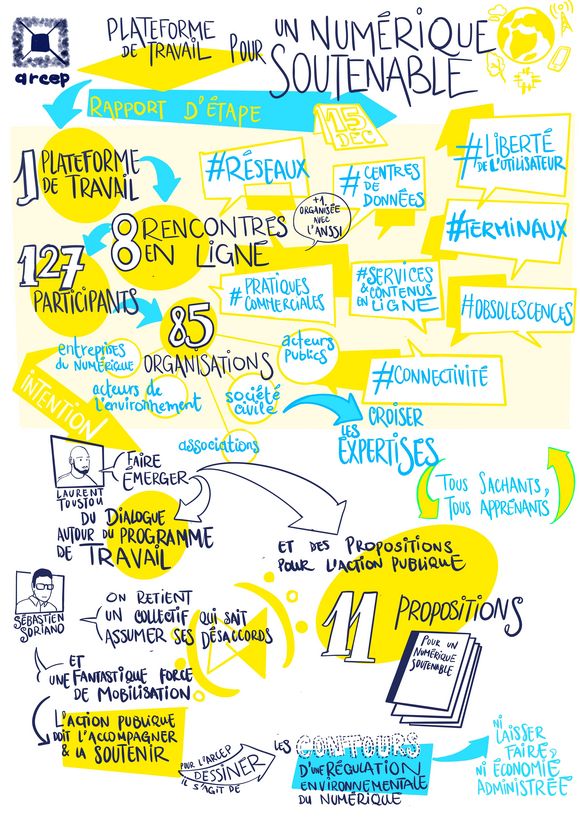 arcep
PLATEFORME
DE TRAVAIL POUR
UN NUMÉRIQUE
SOUTENABLE
RAPPORT D'ÉTAPE
15
DÉC
1 PLATEFORME
DE TRAVAIL
8 RENCONTRES
EN LIGNE
+1
ORGANISÉE
AVEC
L'ANSSI
127
PARTICIPANTS
85
ORGANISATIONS
#RÉSEAUX
#CENTRES
DE
DONNÉES
#LIBERTÉ
DE L'UTILISATEUR
#TERMINAUX
#PRATIQUES
COMMERCIALES
#SERVICES
& CONTENUS
EN LIGNE
#OBSOLESCENCES
#CONNECTIVITÉ
entreprises
du NUMÉRIQUE
acteurs
PUBLICS
acteurs de
l'environnement
société
civile
associations
CROISER
LES
EXPERTISES
TOUS SACHANTS,
TOUS APPRENANTS
INTENTION
LAURENT
TOUSTOU
FAIRE
ÉMERGER
DU DIALOGUE
AUTOUR DU PROGRAMME
DE TRAVAIL
ET DES PROPOSITIONS
POUR L'ACTION PUBLIQUE
11 PROPOSITIONS
POUR UN
NUMÉRIQUE
SOUTENABLE
SÉBASTIEN
SORIANO
ON RETIENT
UN COLLECTIF QUI SAIT
ASSUMER SES DÉSACCORDS
ET
UNE FANTASTIQUE FORCE
DE MOBILISATION
L'ACTION PUBLIQUE
DOIT L'ACCOMPAGNER
& LA SOUTENIR
POUR L'ARCEP
IL S'AGIT DE
DESSINER
LES CONTOURS
D'UNE RÉGULATION
ENVIRONNEMENTALE
DU NUMÉRIQUE
NI
LAISSER
FAIRE,
NI ÉCONOMIE
ADMINISTRÉE